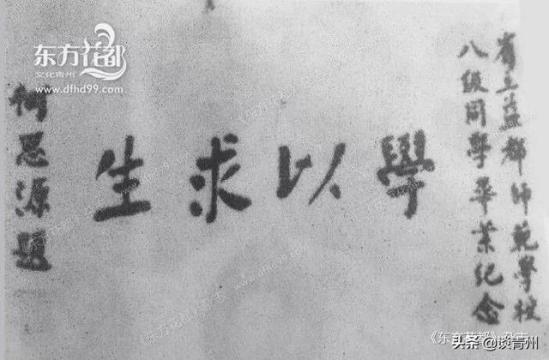 省立益都师範學校
八级同學畢業纪念
學以求生
何思源題
东方花都
文化青州
www.dfhd99.com
《东方花都》杂志
头条 @谈青州